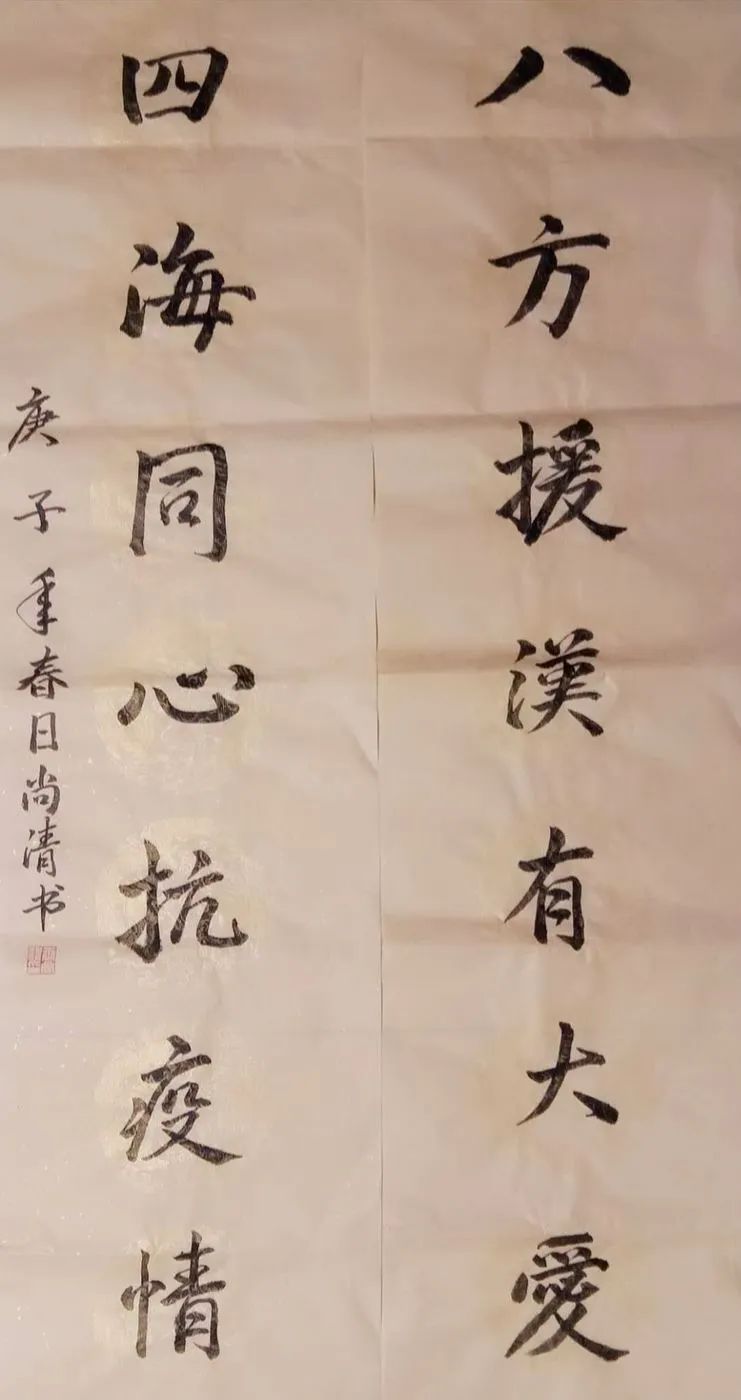 八方援漢有大愛
四海同心抗疫情
庚子年春日尚清书